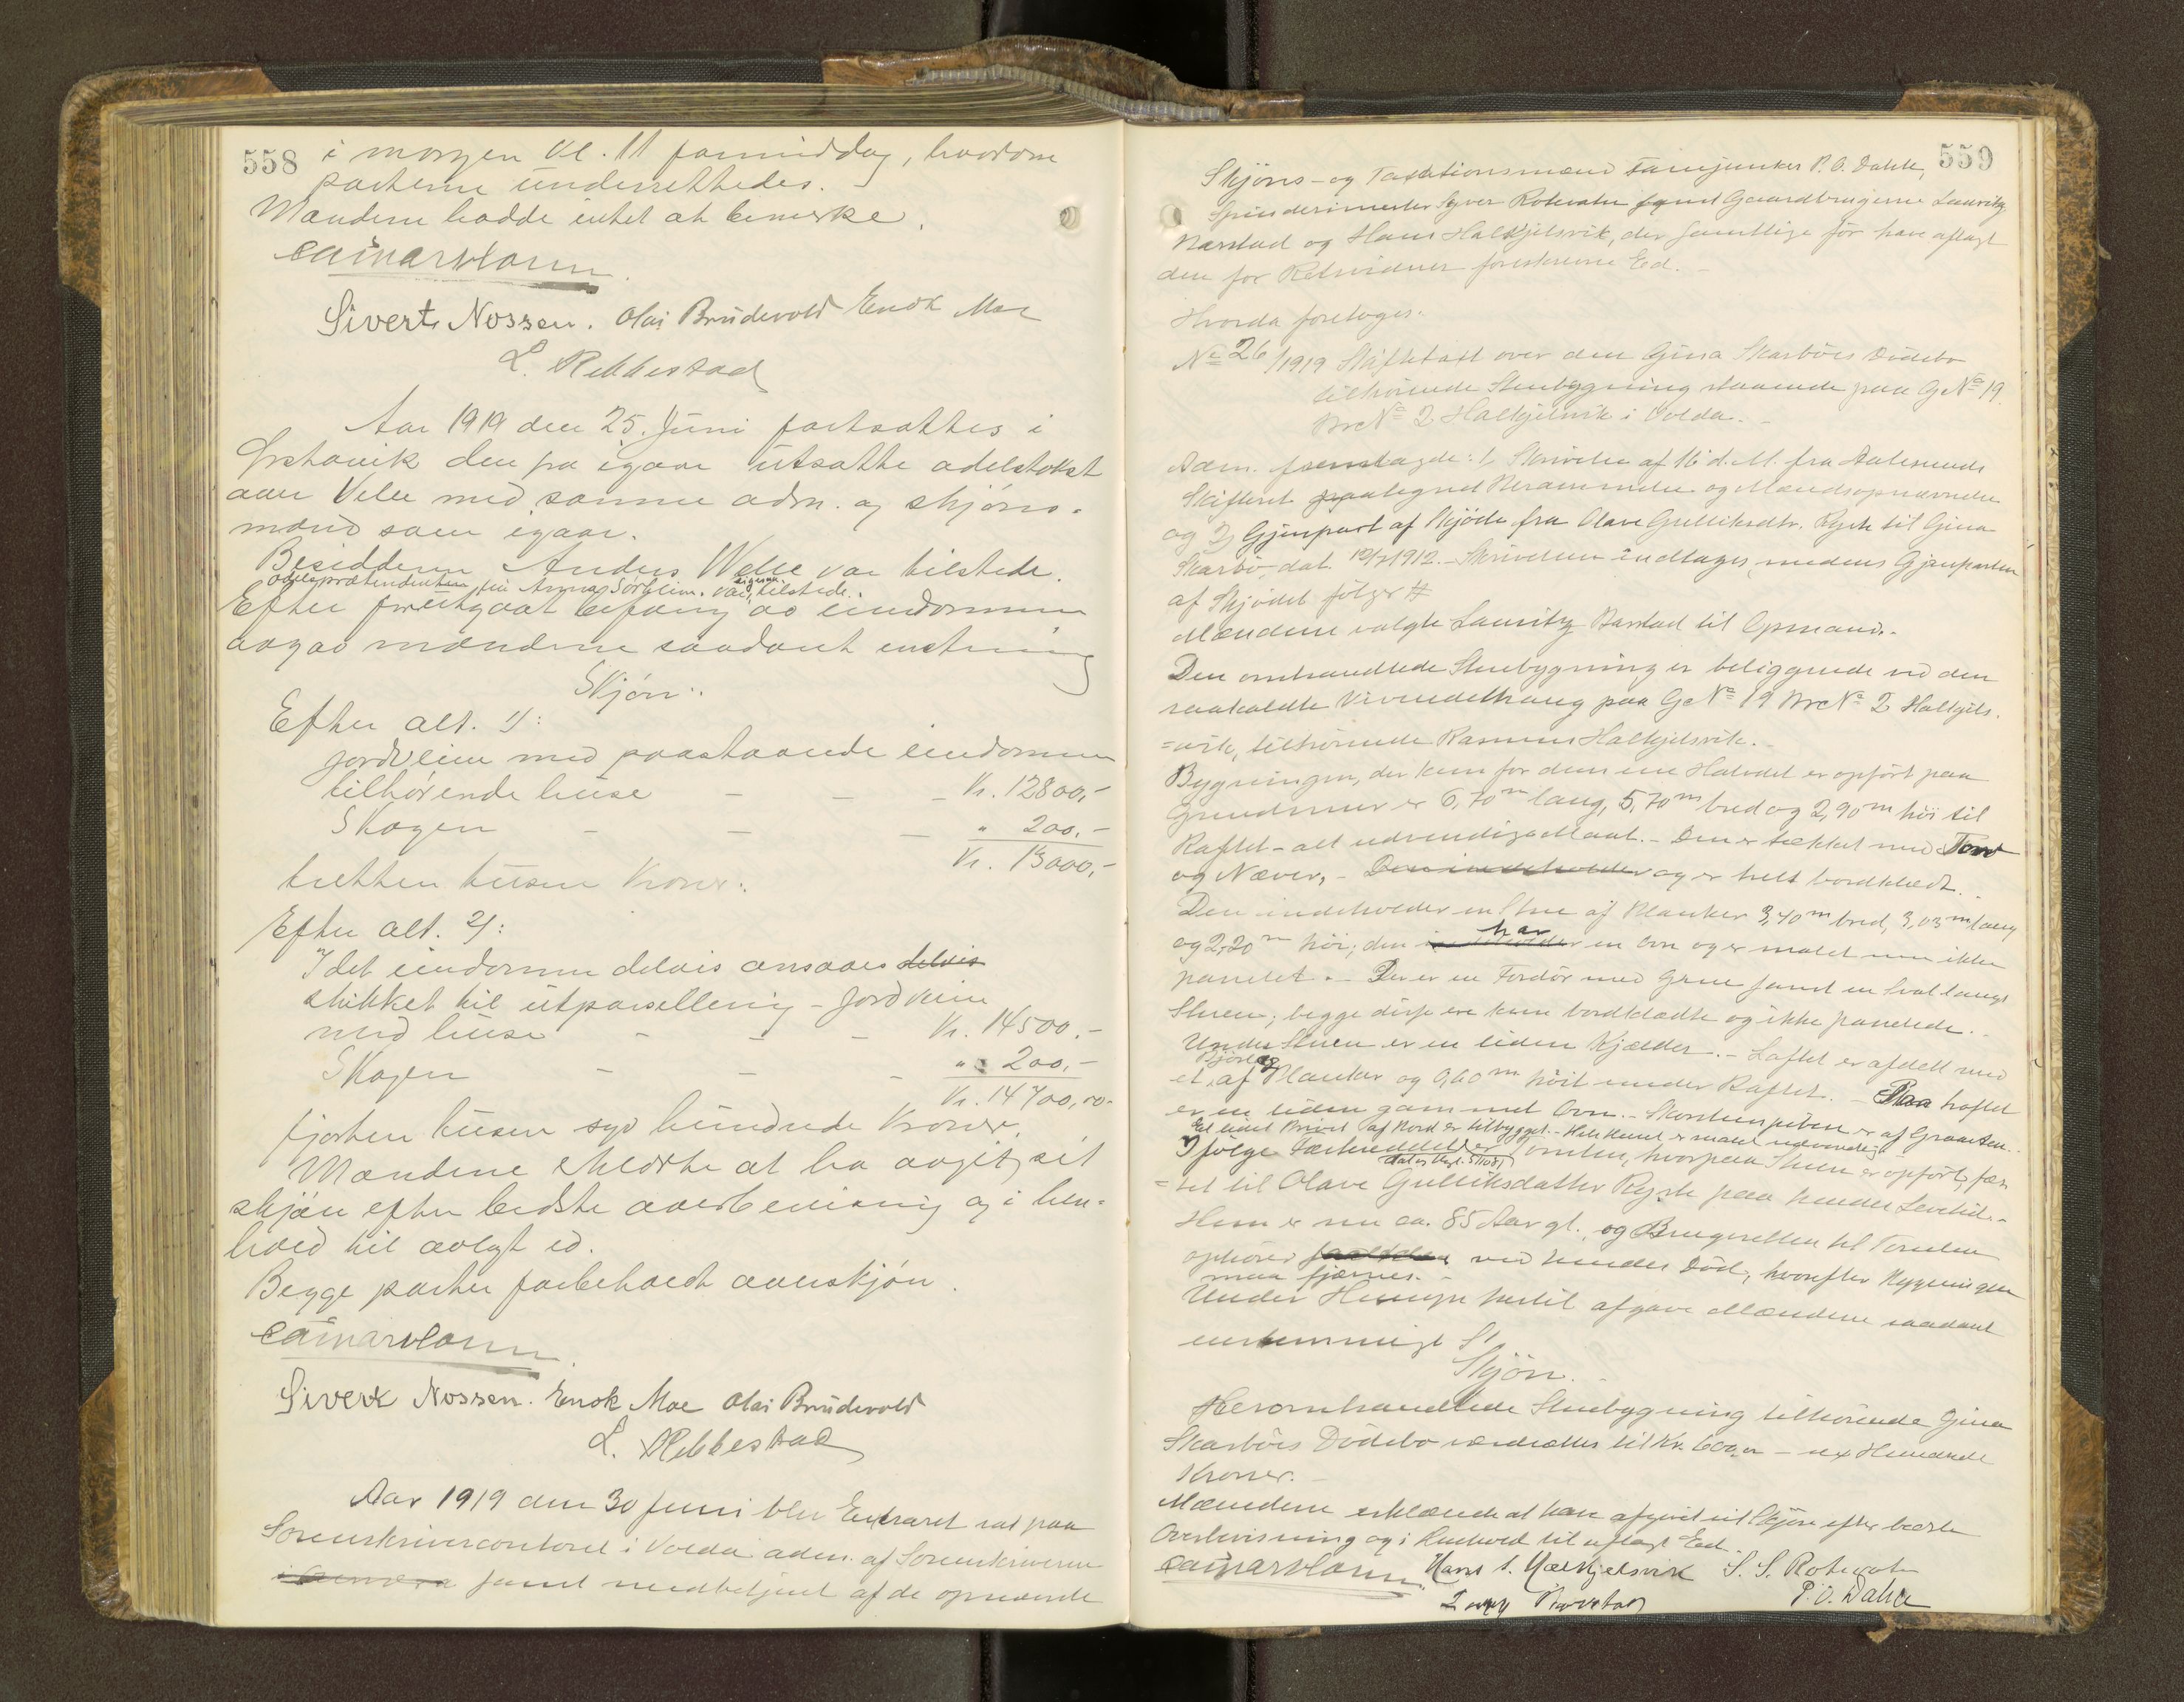 558
i morgen kl. 11 formiddag, hvorom
parterne underrettedes.
Mændene hadde intet at bemerke.
Sivert Nossen. Olai Brudevold Enok Moe
L. Rebbestad
Aar 1919 den 25. Juni fortsattes i
Ørstavik den fra igaar utsatte odelstakst
over Velle med samme adm. og skjøns-
mænd som igaar.
Besidderen Anders Welle var tilstede.
Odelsprætendenten fru Anna Sørheim. var tilstede.
Efter foreitgaat befaring av eiendommen
avgav mændene saadant enstemmig
Skjøn:
Efter alt. 1):
Jordveien med paastaaende eiendommen
tilhørende huse - - - Kr. 12800,-
Skogen - - - " 200.-
Kr. 13000,-
tretten tusen Kroner.
Efter alt. 2):
Idet eiendommen delvis ansaaes delvis
skikket til utparsellering - Jordveien
med huse - - - Kr. 14500.-
Skogen - - - " 200,-
Kr. 14700,00.
fjorten tusen syv hundrede Kroner.
Mændene erklærte at ha avgit sit
skjøn efter bedste overbevisning og i hen-
hold til avlagt ed.
Begge parter forbeholdt overskjøn.
Sivert Nossen. Enok Moe Olai Brudevold
L. Rebbestad
Aar 1919 den 30 Juni blev Extraret sat paa
Sorenskrivercontoret i Volda adm. af Sorenskriveren
samt medbetjent af de opnævnte
559
Skjøns- og Taxationsmænd P. O. Dahle,
Spinderimester Syver Rotevatn samt Gaardbrugerne Lauritz
Barstad og Hans Halkjelsvik, der samtlige før have aflagt
den for Retsvidner foreskrevne Ed.-
Hvorda foretoges:
No 26/1919 Skiftetaxt over den Gina Skarbøes Dødsbo
tilhørende Stuebygning staaende paa GNo 19
BrNo 2 Halkjelsvik i Volda.-
Adm. fremlagde: 1, Skrivelse af 16 d. M. fra Aalesunds
Skifteret paategnet Berammelse og Mændsopnævnelse
og 2, Gjenpart af Skjøde fra Olave Gulliksdtr. Ryste til Gina
Skarbø, dat. 12/7 1912.- Skrivelsen indtages, medens Gjenparten
af Skjødet følger #
Mændene valgte Lauritz Barstad til Opmand.-
Den omhandlede Stuebygning er beliggende ved den
saakaldte Vivendelhaug paa GNo 19 BrNo 2 Halkjels-
=vik, tilhørende Rasmus Halkjelsvik.-
Bygningen, der kun for dens ene Halvdel er opført paa
Grundmur er 6,70 m lang, 5,70 m bred og 2,90 m høi til
Raftet - alt udvendig Maal.- Den er tækket med Torv
og Næver,- Den indeholder og er helt bordklædt.
Den indeholder en Stue af Planker 3,40 m bred, 3,03 m lang
og 2,20 m høi; den har en Ovn og er malet men ikke
panelet.- Der er en Fordør med Grue samt en Sval langs
Stuen; begge disse ere kun bordklædte og ikke panelede.-
Under Stuen er en liden Kjælder.- Loftet er afdelt med
et Bjørelag af Planker og 0,60 m høit under Raftet.- Paa Loftet
er en liden gammel Ovn.- Skorstenspiben er af Graasten.-
Et lidet Brivet af Bord er tilbygget.- Hele Huset er malet udvendig.
Ifølge Fæsteseddel er Tomten, hvorpaa Stuen er opført, fæs-
=tet til Olave Gulliksdatter Ryste paa hendes Levetid.-
Hun er nu ca. 85 Aar gl., og Brugsretten til Tomten
ophører ved hendes Død, hvorefter Bygningen
maa fjernes.-
Under Hensyn hertil afgave Mændene saadant
enstemmigt
Skjøn.
Heromhandlede Stuebygning tilhørende Gina
Skarbøes Dødsbo værdsættes til Kr. 600,00 - sex Hundrede
Kroner.-
Mændene erklærede at have afgivet sit Skjøn efter bedste
Overbevisning og i Henhold til aflagt Ed.
Hans S. Halkjelsvik S. S. Rotevatn
P. O. Dahle